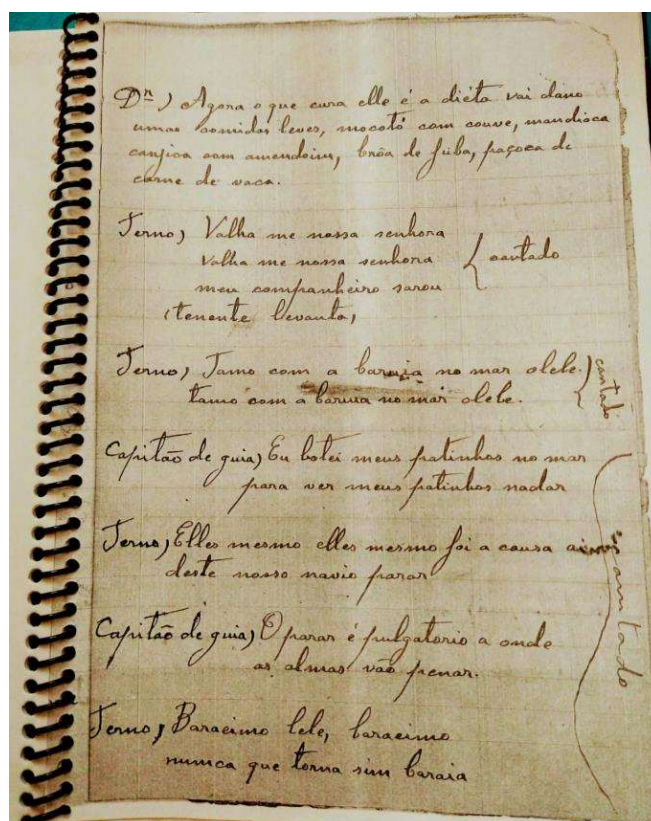 Dr) Agora o que cura elle é a diéta vai dano
umas comidas leves, mocotó com couve, mandioca
canjica com amendoim, brôa de fubá, paçoca de
carne de vaca.
Terno) Valha me nossa senhora
valha me nossa senhora
meu companheiro sarou
cantado
(tenente levanta)
Terno) Tamo com a baraia no mar olele.
tamo com a baraia no mar olele.
cantado
Capitão de guia) Eu botei meus patinhos no mar
para ver meus patinhos nadar
Terno) Elles mesmo elles mesmo foi a causa
deste nosso navio parar
cantado
Capitão de guia) O parar é pulgatorio a onde
as almas vão penar.
Terno) Baracimo lele, baracimo
nunca que torna sim baraia